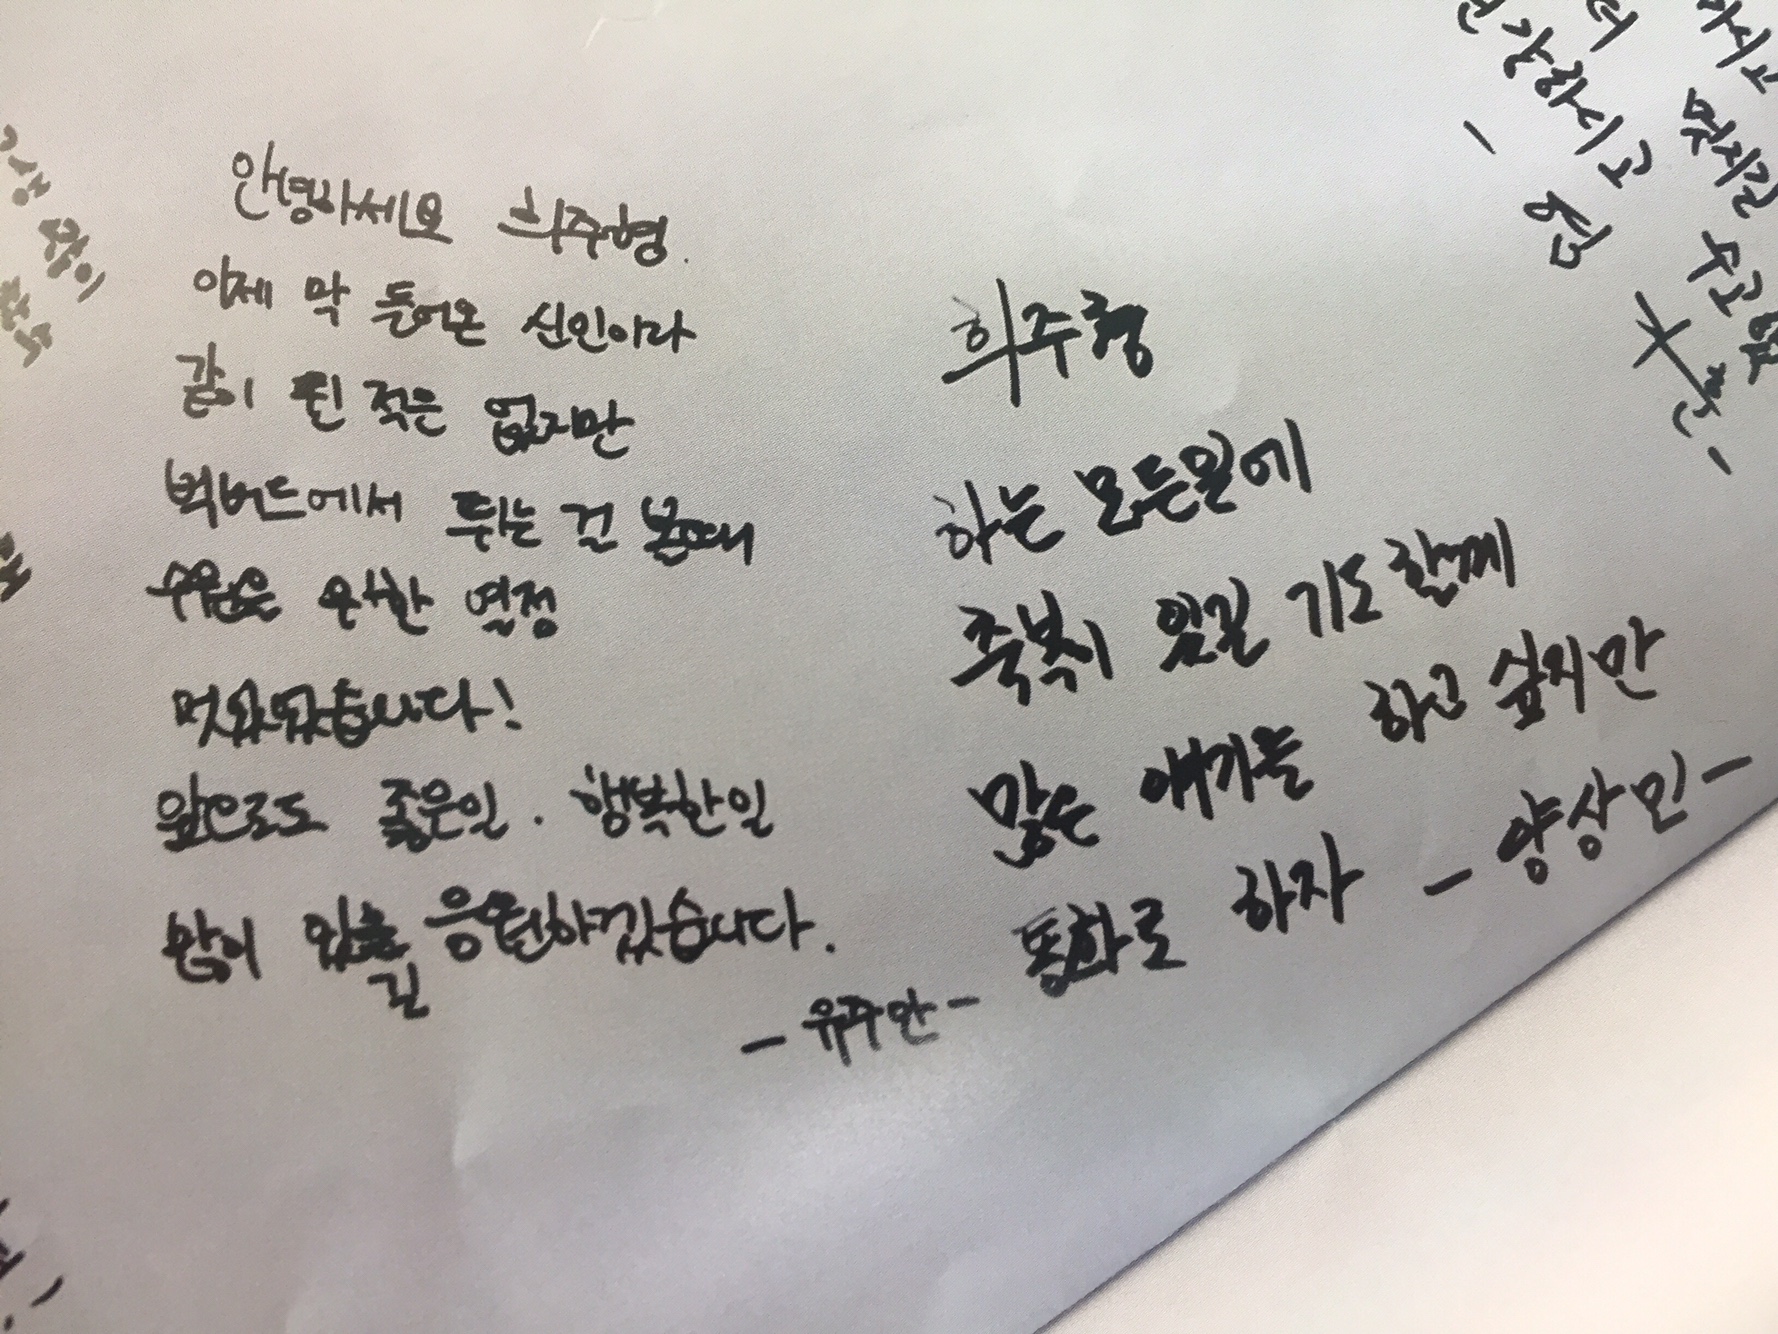 안녕하세요 희주형.
이제 막 들어온 신인이라
같이 뛴 적은 없지만
빅버드에서 뛰는 걸 볼때
수원을 향한 열정
멋있었습니다!
앞으로도 좋은일. 행복한일
많이 있길 응원하겠습니다.
- 유주안 -
희주형
하는 모든일에
축복이 있길 기도할께
많은 얘기들 하고 싶지만
통화로 하자 - 양상민 -
하시고
멋지길 수고
강하시고